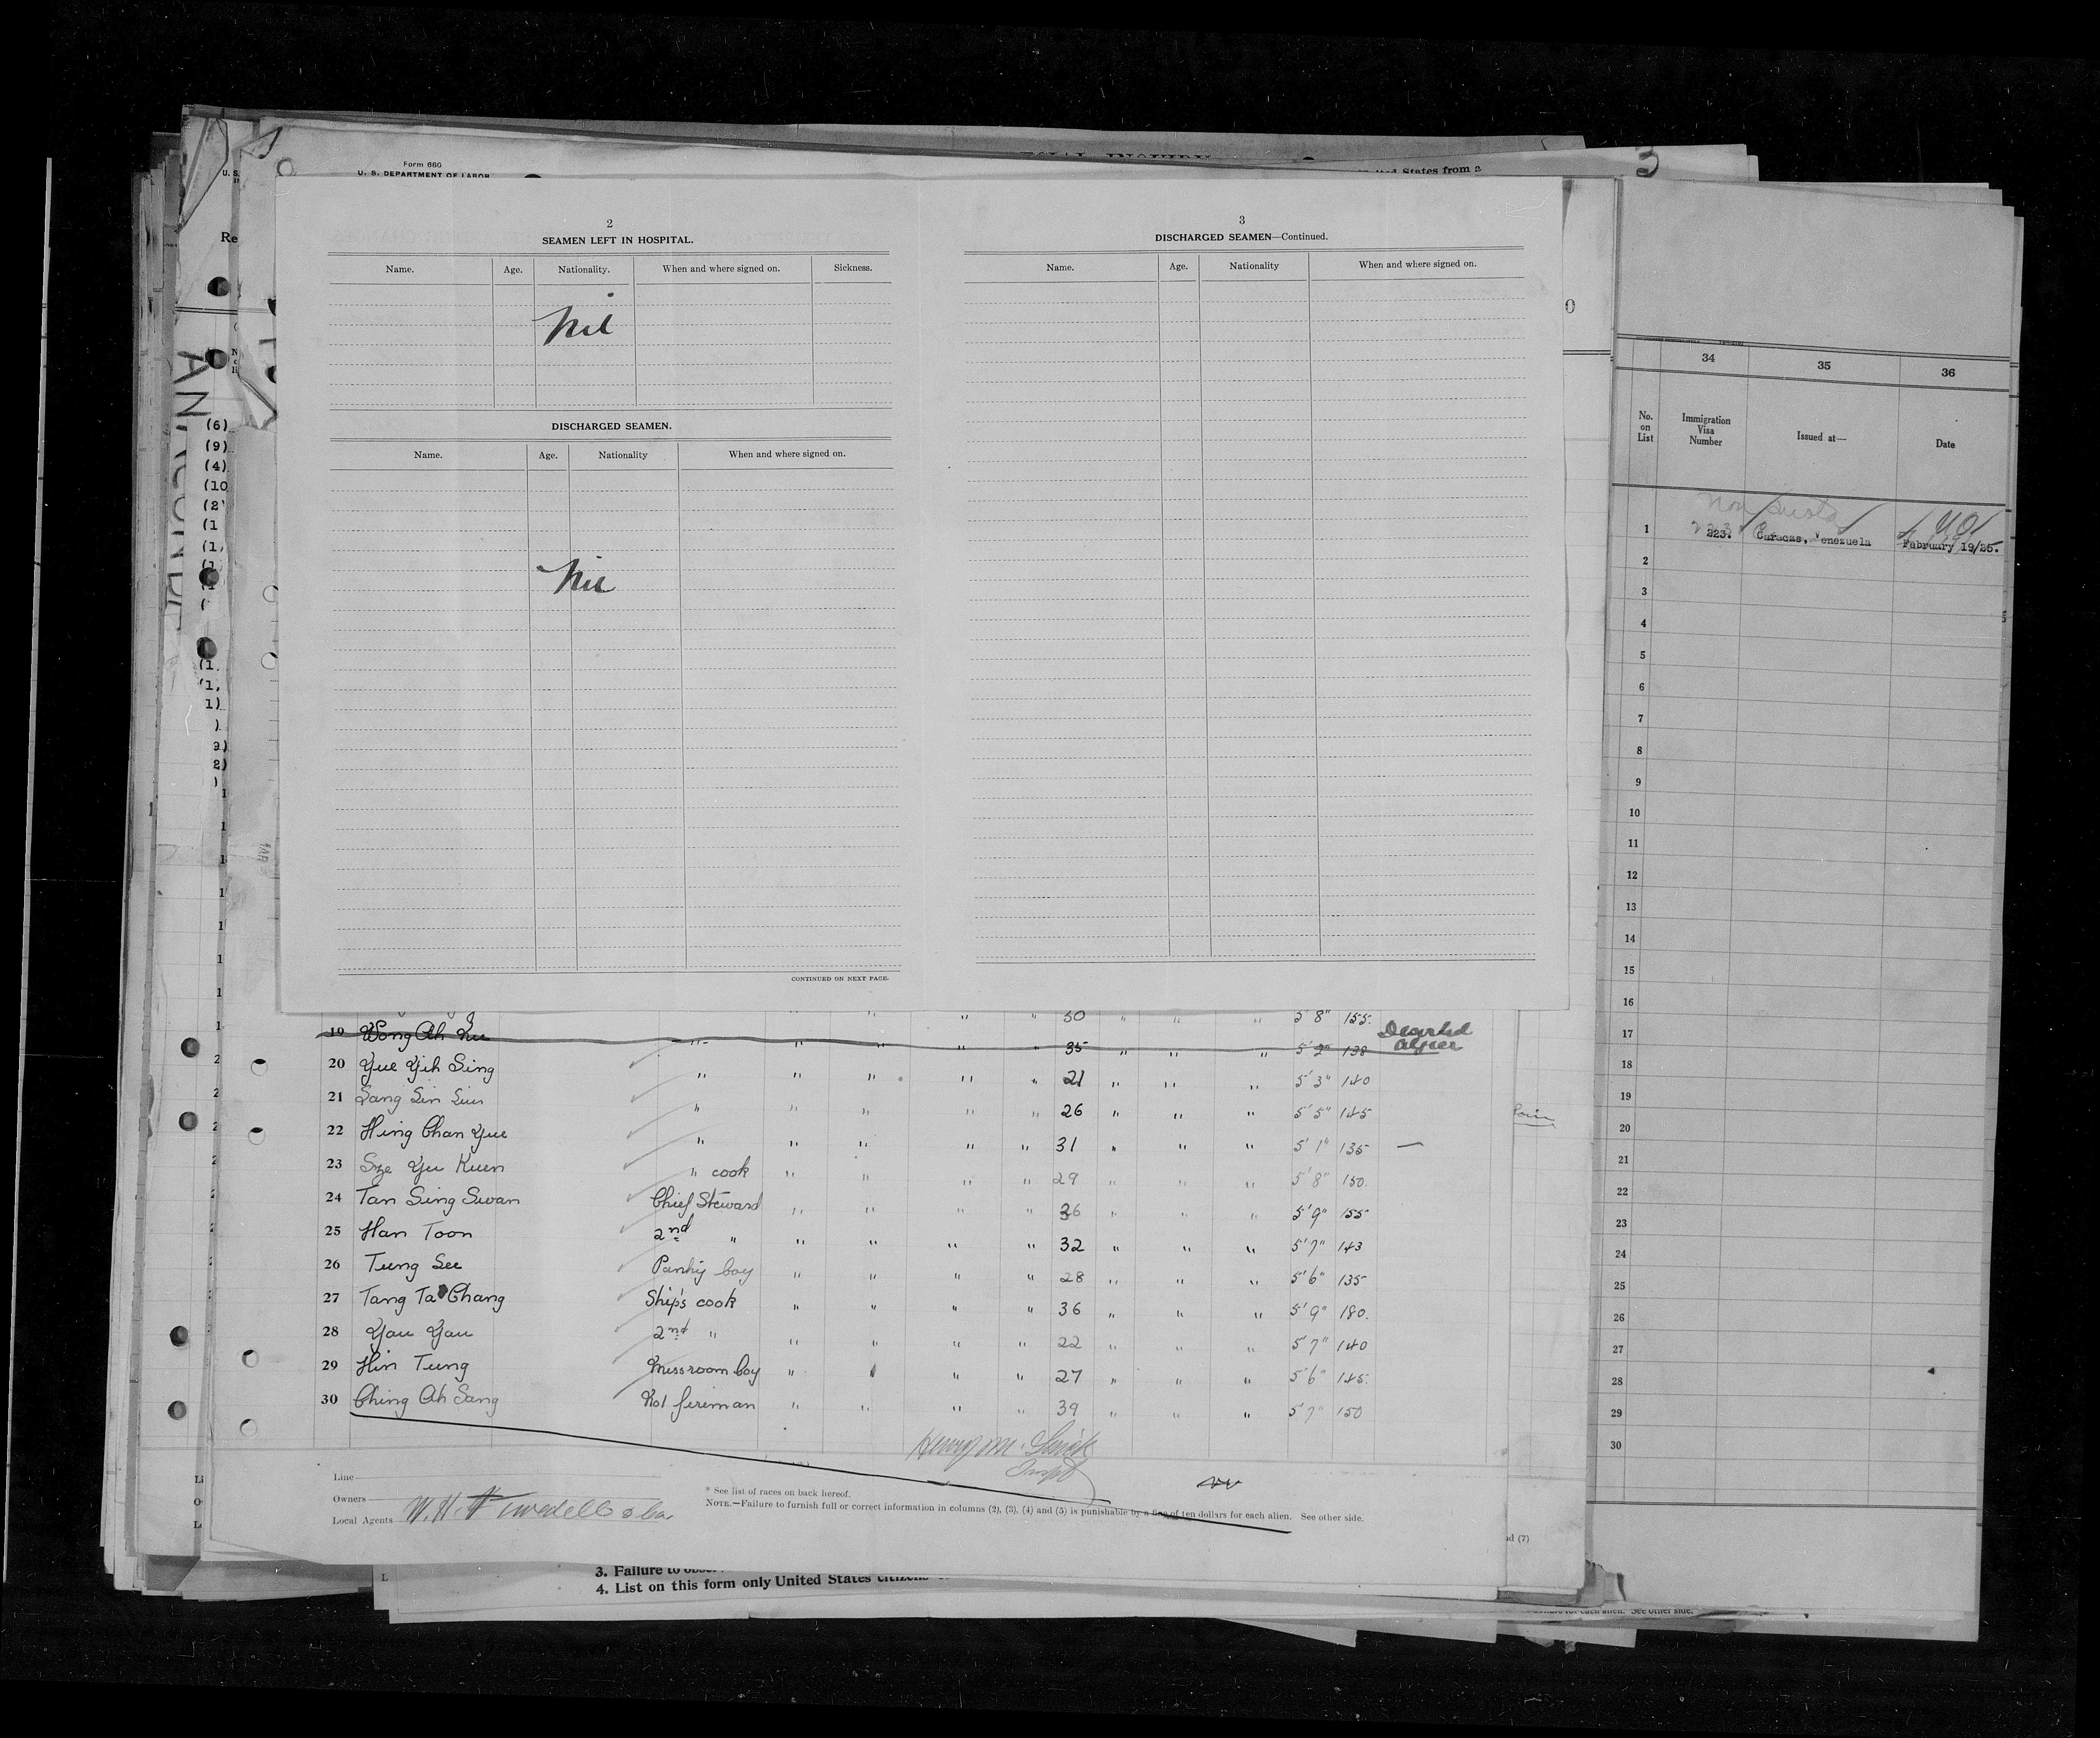 Form 680
U. S. DEPARTMENT OF LABOR
United States from a
3
2
SEAMEN LEFT IN HOSPITAL.
Name. Age. Nationality. When and where signed on. Sickness.
Nil
DISCHARGED SEAMEN.
Name. Age. Nationality When and where signed on.
Nil
CONTINUED ON NEXT PAGE.
3
DISCHARGED SEAMEN—Continued.
Name. Age. Nationality When and where signed on.
34 35 36
No. on List Immigration Visa Number Issued at— Date
1 223. Caracas, Venezuela February 19/25.
2
3
4
5
6
7
8
9
10
11
12
13
14
15
16
17
18
19
20
21
22
23
24
25
26
27
28
29
30
" " " 30 " " " 5' 8" 155.
19 Wong Ah " " " " " 35 " " " 5' 2" 138 Deserted
20 Yue Yih Sing " " " " " 21 " " " 5' 3" 140
21 Sang Sin " " " " " 26 " " " 5' 5" 145
22 Hing Chan Yue " " " " " 31 " " " 5' 1" 135 —
23 Sze Yu Kuen " cook " " " " 29 " " " 5' 8" 150.
24 Tan Sing Swan Chief Steward " " " " 36 " " " 5' 9" 155
25 Han Toon 2nd " " " " " 32 " " " 5' 7" 143
26 Tung See Pantry boy " " " " 28 " " " 5' 6" 135
27 Tang Ta Chang Ship's cook " " " " 36 " " " 5' 9" 180.
28 Yau Yau 2nd " " " " " 22 " " " 5' 7" 140
29 Hin Tung Messroom boy " " " " 27 " " " 5' 6" 145.
30 Ching Ah Sang No1 fireman " " " " 39 " " " 5' 7" 150
Line
Owners
Local Agents
* See list of races on back hereof.
NOTE.—Failure to furnish full or correct information in columns (2), (3), (4) and (5) is punishable by a fine of ten dollars for each alien. See other side.
3. Failure to
4. List on this form only United States citizens
for each alien. See other side.